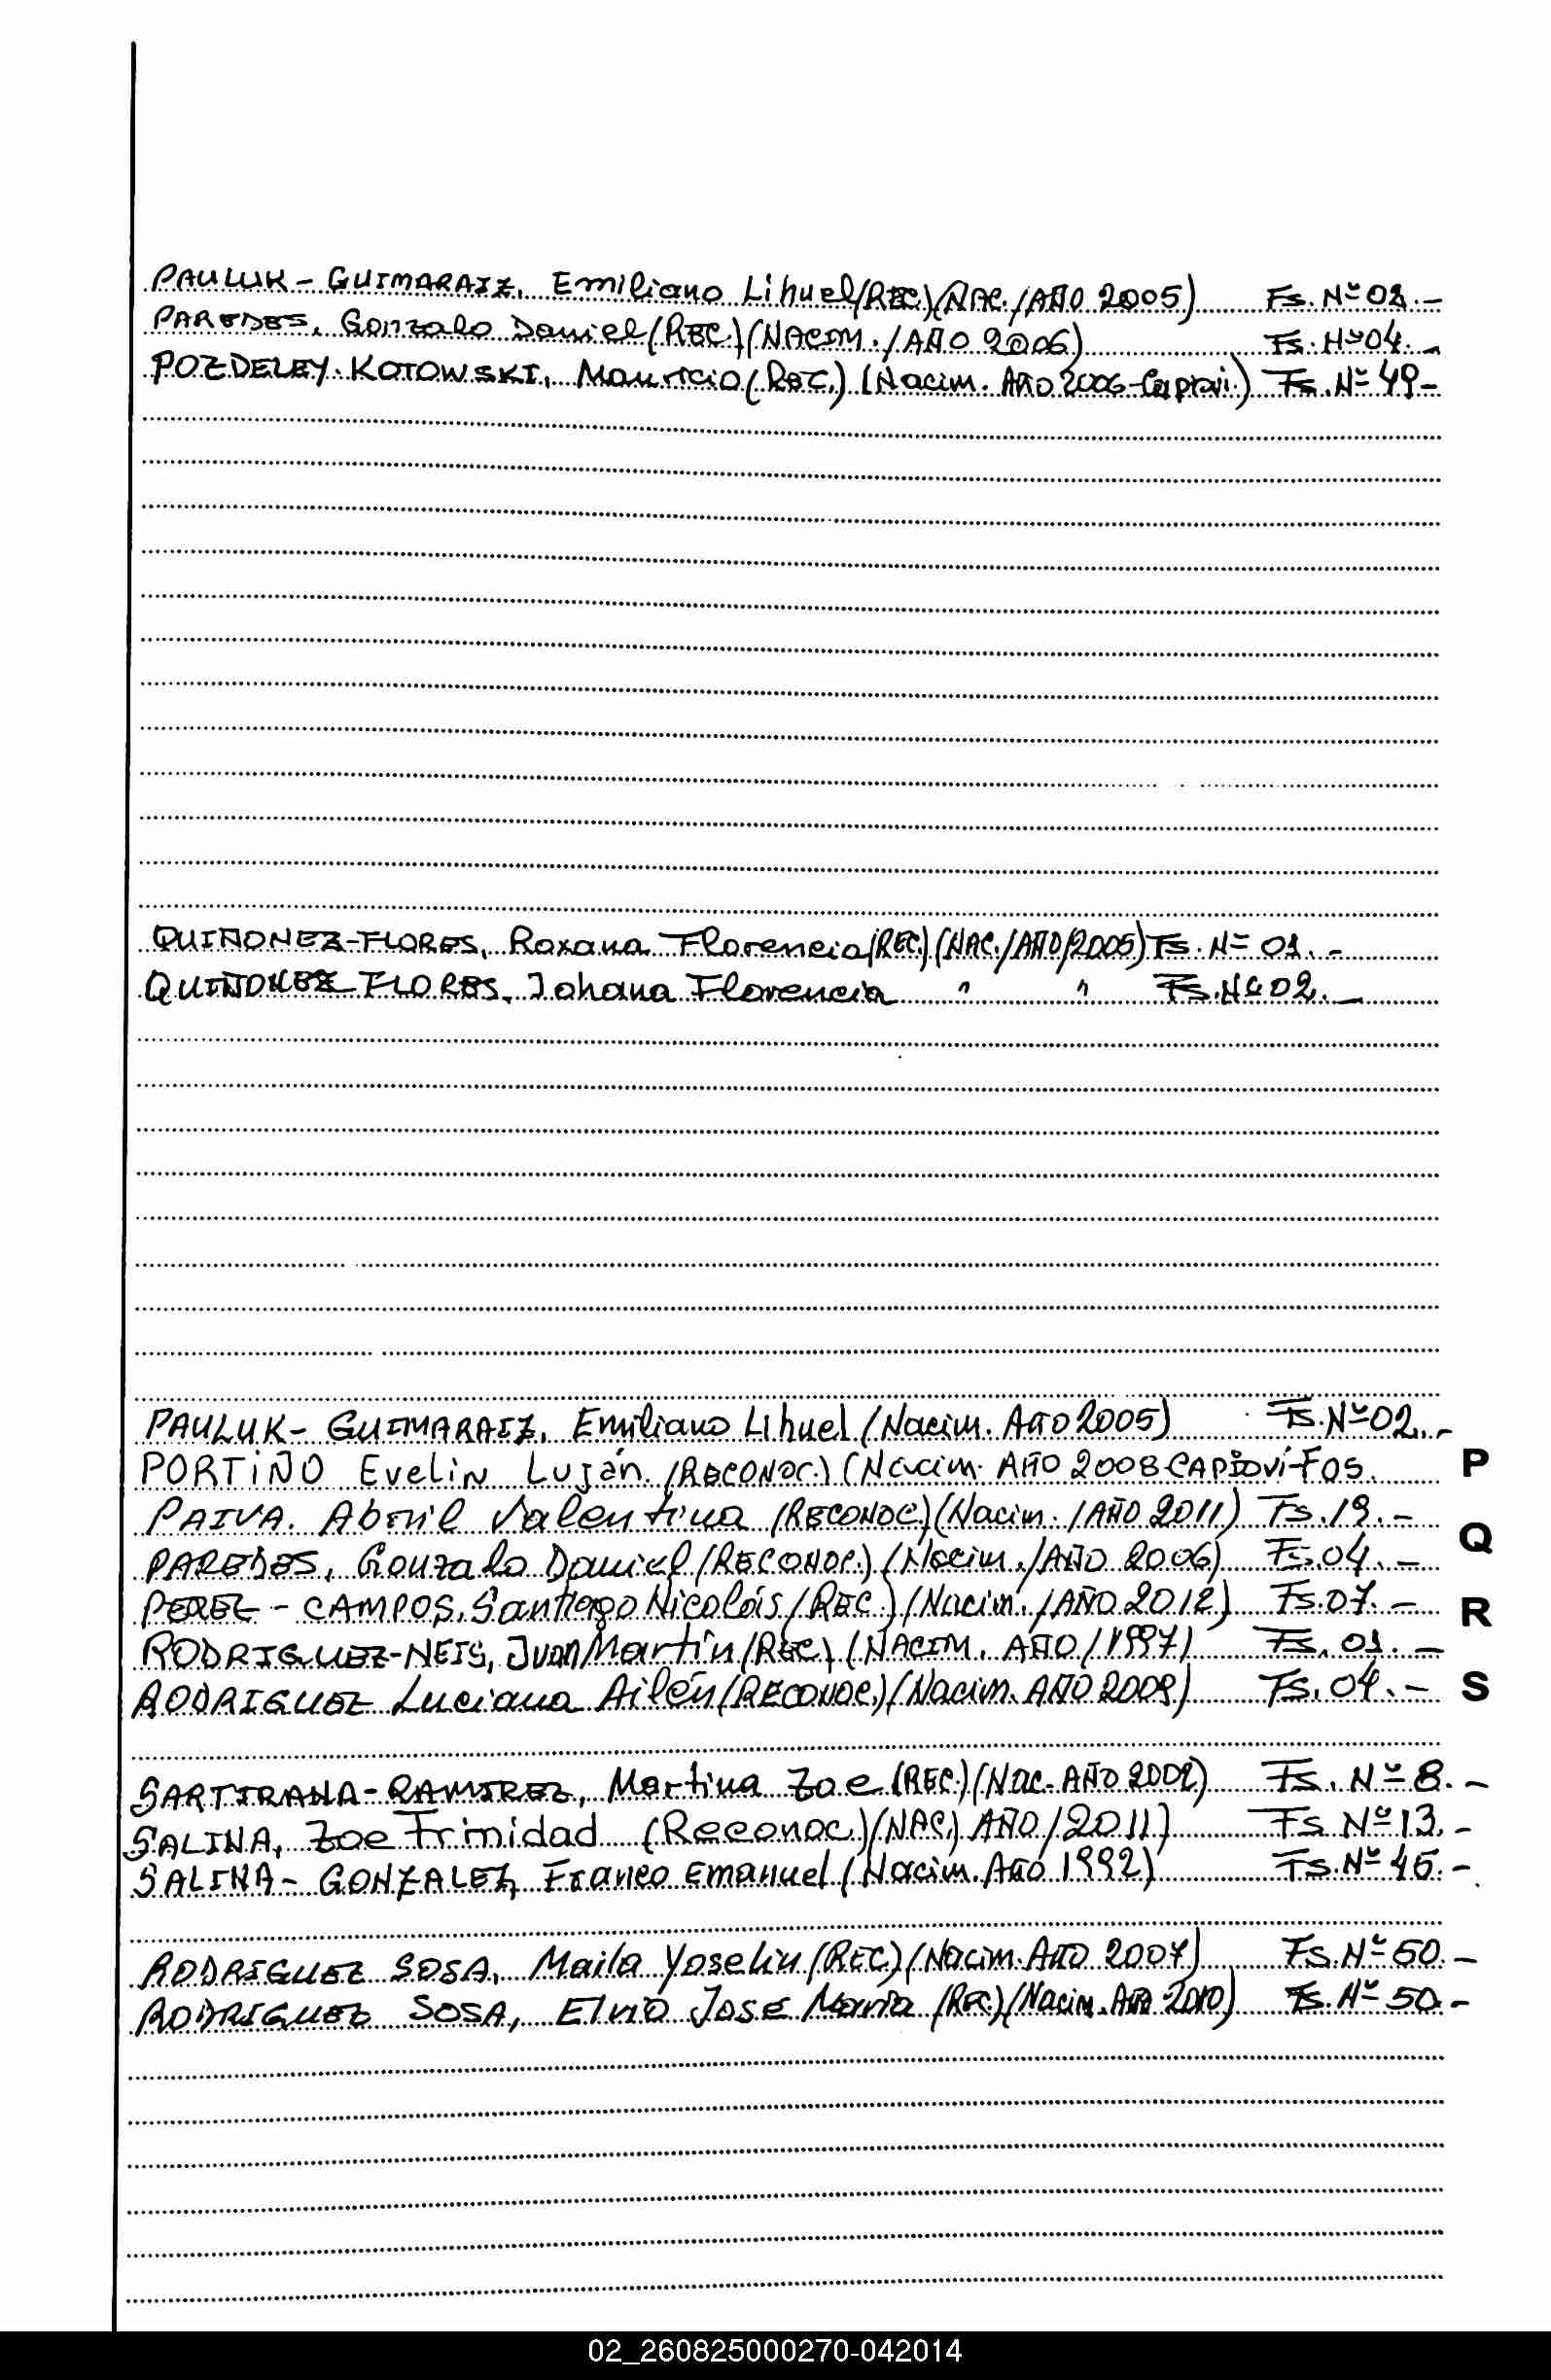 PAULUK - GUIMARAIZ, Emiliano Lihuel (REC.) (NAC./AÑO 2005) Fs. Nº 02.-
PAREDES, Gonzalo Daniel (REC.) (NACIM./AÑO 2006) Fs. Nº 04.-
POZDELEY-KOTOWSKI, Mauricio (REC.) (Nacim. AÑO 2006-Capiovi.) Fs. Nº 49-
QUIÑONEZ-FLORES, Roxana Florencia (REC.) (NAC./AÑO/2005) Fs. Nº 01.-
QUIÑONEZ FLORES, Johana Florencia " " Fs. Nº 02.-
PAULUK - GUIMARAIZ, Emiliano Lihuel (Nacim. Año 2005) Fs. Nº 02.-
PORTIÑO Evelin Luján (RECONOC.) (Nacim. AÑO 2008 CAPIOVI-F05. P
PAIVA. Abril Valentina (RECONOC.) (Nacim./AÑO 2011) Fs. 19.-
PAREDES, Gonzalo Daniel (RECONOC.) (Nacim./AÑO 2006) Fs. 04.- Q
PEREZ - CAMPOS, Santiago Nicolás (REC.) (Nacim./AÑO 2012) Fs. 07.- R
RODRIGUEZ-NEIS, Juan Martín (REC) (NACIM. AÑO/1997) Fs. 01.-
RODRIGUEZ Luciana Ailén (RECONOC.) (Nacim. AÑO 2009) Fs. 04.- S
SARTIRANA-RAMIREZ, Martina Zoe (REC.) (Nac. AÑO 2002) Fs. Nº 8.-
SALINA, Zoe Trinidad (Reconoc.) (NAC.) AÑO/2011) Fs Nº 13.-
SALINA - GONZALEZ, Franco Emanuel (Nacim. Año 1992) Fs. Nº 45.-
RODRIGUEZ SOSA, Maila Yoselin (REC) (Nacim. AÑO 2007) Fs. Nº 50.-
RODRIGUEZ SOSA, Elvio José María (Rec.) (Nacim. Año 2010) Fs. Nº 50.-
02_260825000270-042014